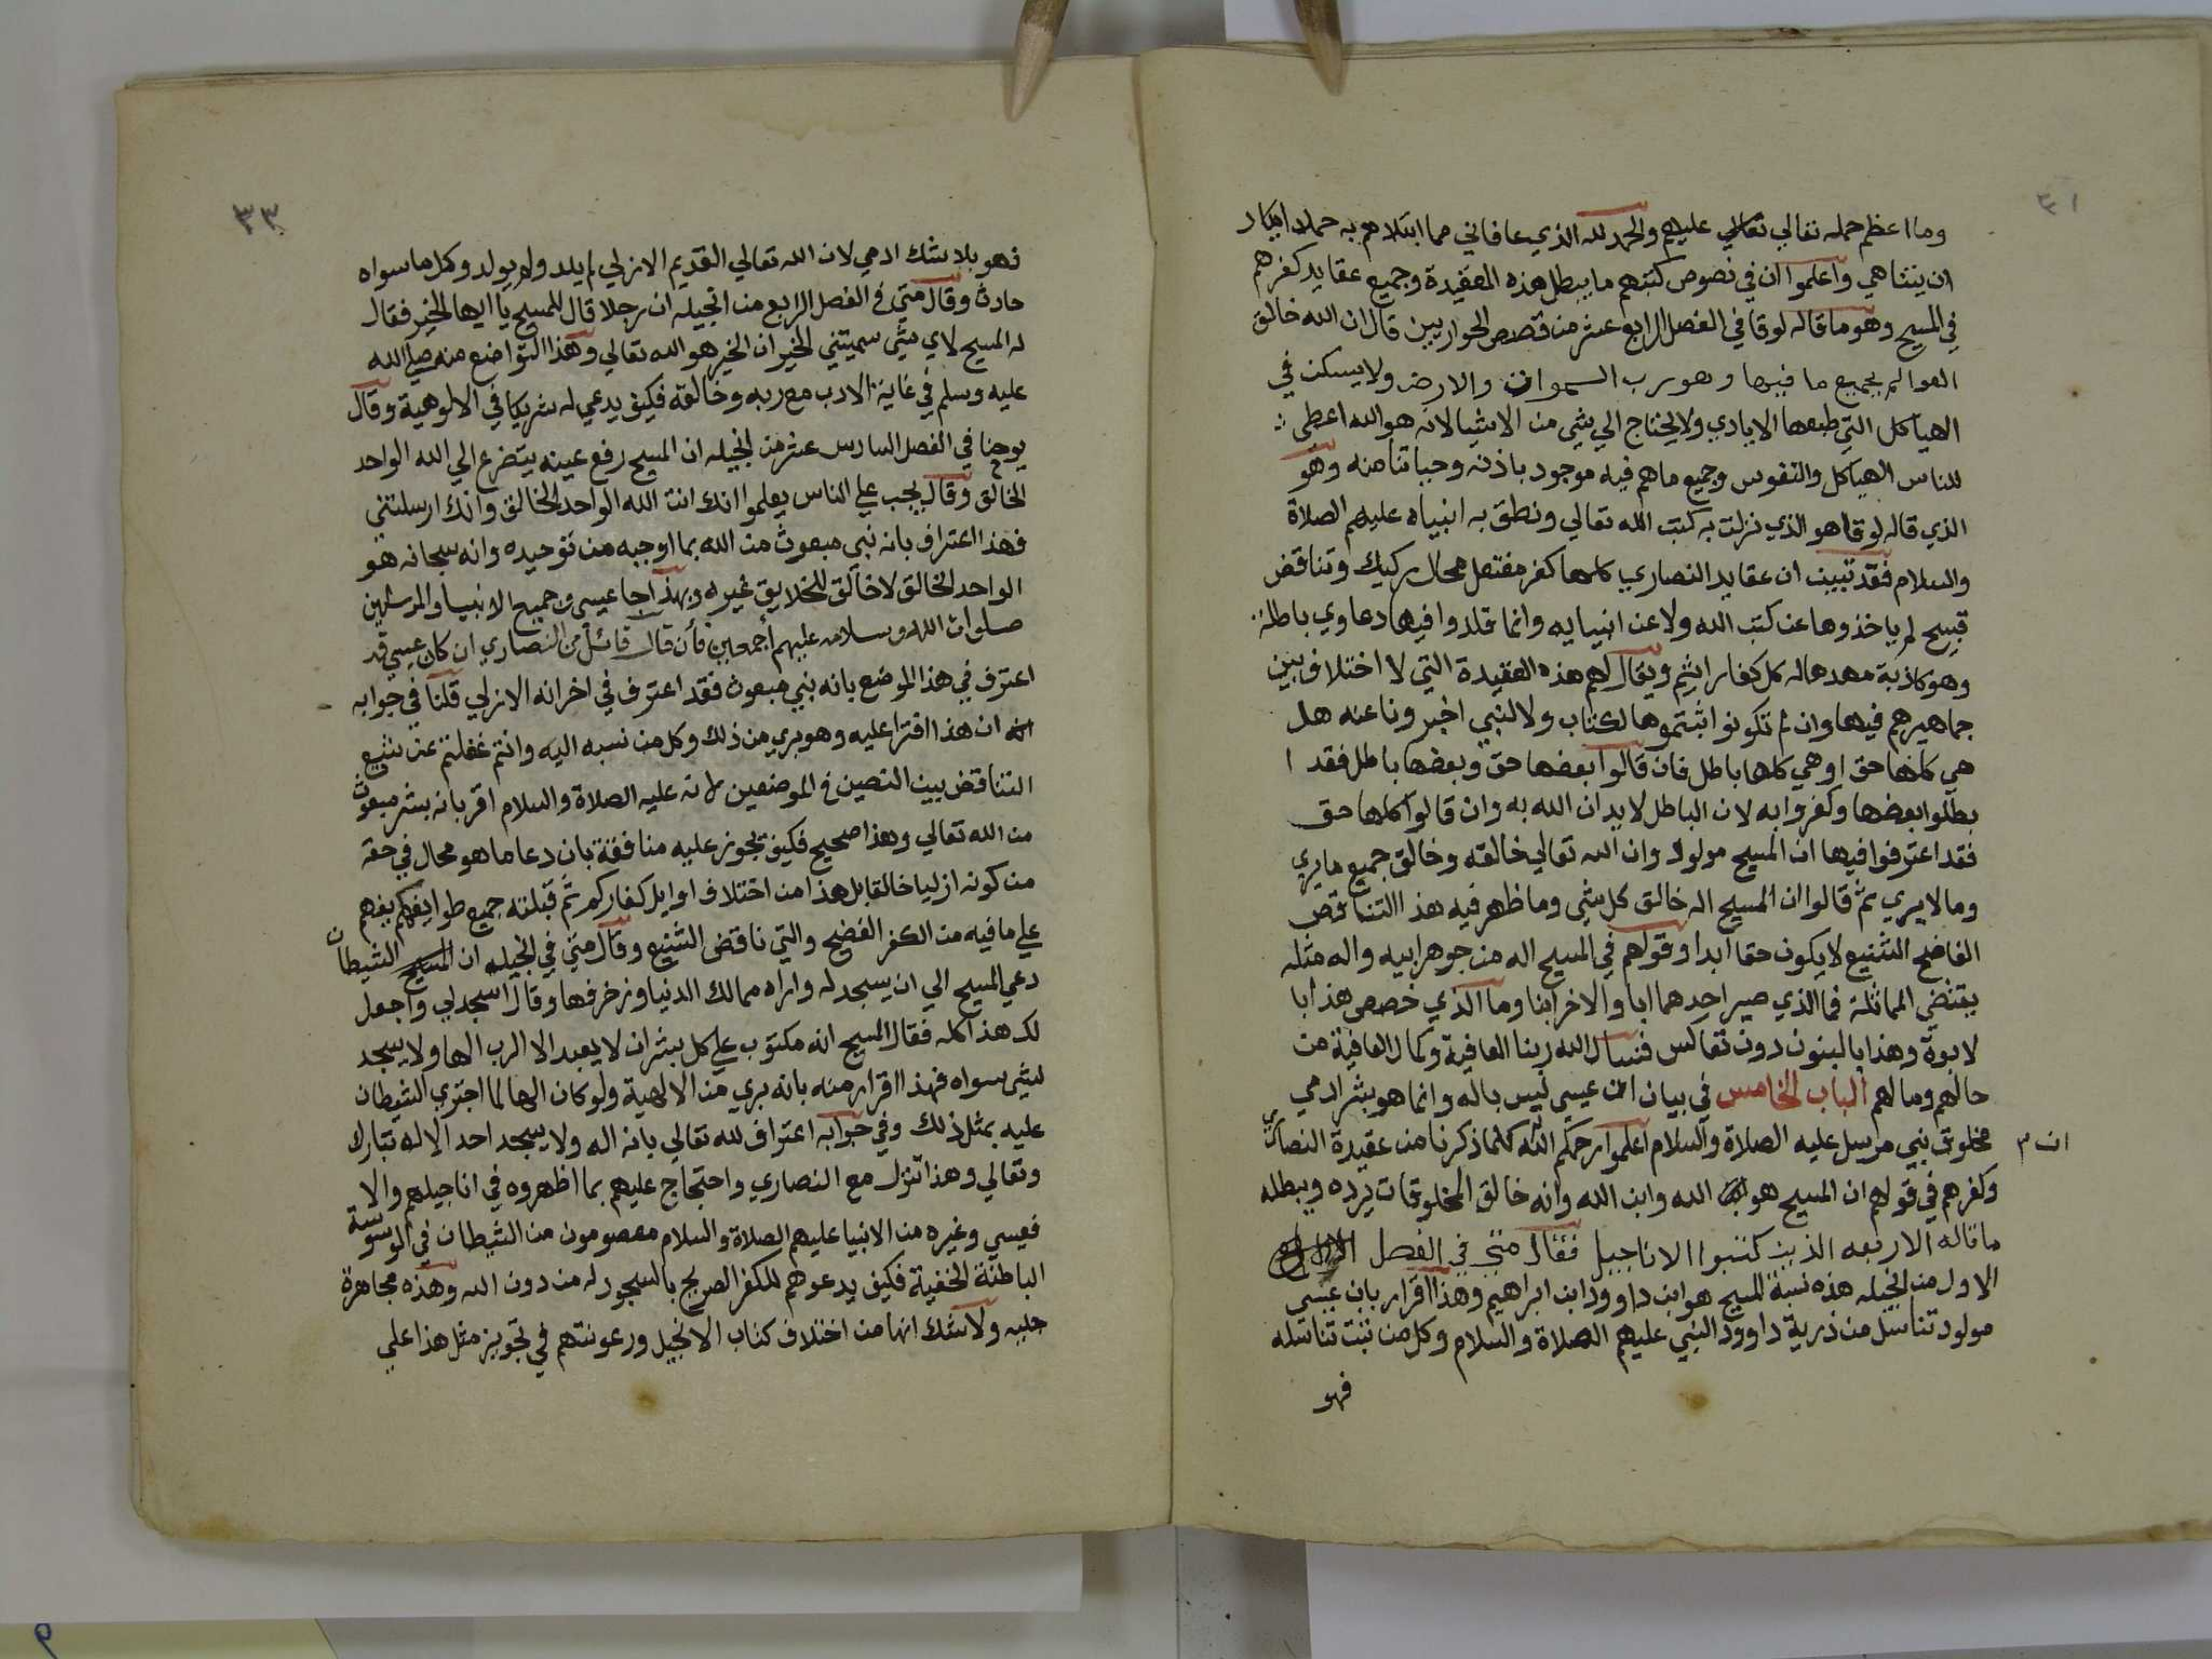 ٣١
وما اعظم حمله تعالي تعالي عليهم والحمد لله الذي عافاني مما ابتلاهم به حملا ايكاد
ان يتناهي واعلموا ان في نصوص كتبهم ما يبطل هذه العقيدة وجميع عقايد كفرهم
في المسيح وهو ما قاله لوقا في الفصل الرابع عشر من قصص الحواريين قال ان الله خالق
العوالم بجميع ما فيها وهو رب السموات والارض ولا يسكن في
الهياكل التي طبعها الايادي ولا يحتاج الي شي من الاشيا لانه هو الله اعطي
للناس الهياكل والنفوس وجميع ما هم فيه موجود باذنه وحياتنا منه وهو
الذي قاله لوقا هو الذي نزلت به كتب الله تعالي ونطق به انبياه عليهم الصلاة
والسلام فقد تبين ان عقايد النصاري كلها كفر مفتعل محال ركيك وتناقض
قبيح لم ياخذوها عن كتب الله ولا عن انبيايه وانما قلدوا فيها دعاوي باطلة
وهو كاذبة مهدها له كل كفار اثيم ويقال لهم هذه العقيدة التي لا اختلاف بين
جماهيرهم فيها وان لم تكونوا اثبتموها لكتاب ولا لنبي اخبرونا عنه هل
هي كلها حق او هي كلها باطل فان قالوا بعضها حق وبعضها باطل فقد ا
بطلوا بعضها وكفروا به لان الباطل لا يدان الله به وان قالوا كلها حق
فقد اعترفوا فيها ان المسيح مولود وان الله تعالي خالقه وخالق جميع ما يري
وما لا يري ثم قالوا ان المسيح اله خالق كل شي وما ظهر فيه هذا التناقض
الفاضح الشنيع لا يكون حقا ابدا وقولهم في المسيح اله من جوهر ابيه واله مثله
يقتضي المماثلة فما الذي صير احدهما ابا والاخر ابنا وما الذي خصص هذا با
لابوة وهذا بالبنون دون تعاكس فنسال الله ربنا العافية وكمال العافية من
حالهم ومالهم الباب الخامس في بيان ان عيسي ليس باله وانما هو بشر ادمي
مخلوق نبي مرسل عليه الصلاة والسلام اعلموا رحمكم الله كلما ذكرنا من عقيدة النصاري
ان ٣
وكفرهم في قولهم ان المسيح هو الله وابن الله وانه خالق المخلوقات يرده ويبطله
ما قاله الاربعه الذين كتبوا الاناجيل فقال متي في الفصل
الاول من انجيله هذه نسبة المسيح هو ابن داوود ابن ابراهيم وهذا اقرار بان عيسي
مولود تناسل من ذرية داوود النبي عليهم الصلاة والسلام وكل من ثبت تناسله
فهو
٣٣
فهو بلا شك ادمي لان الله تعالي القديم الازلي لم يلد ولم يولد وكل ما سواه
حادث وقال متي في الفصل الرابع من انجيله ان رجلا قال للمسيح يا ايها الخير فقال
له المسيح لاي شي سميتني الخير ان الخير هو الله تعالي وهذا التواضع منه صلي الله
عليه وسلم في غاية الادب مع ربه وخالقه فكيف يدعي له شريكا في الالوهية وقال
يوحنا في الفصل السادس عشر من انجيله ان المسيح رفع عينه يتضرع الي الله الواحد
الخالق وقال يجب علي الناس يعلموا انك انت الله الواحد الخالق وانك ارسلتني
فهذا اعتراف بانه نبي مبعوث من الله بما اوجبه من توحيده وانه سبحانه هو
الواحد الخالق لا خالق للخلايق غيره وبهذا جا عيسي وجميع الانبيا والمرسلين
صلوات الله وسلامه عليهم أجمعين فأن قال قائل من النصاري ان كان عيسي قد
اعترف في هذا الموضع بانه نبي مبعوث فقد اعترف في اخر انه الازلي قلنا في جوابه
ان هذا افترا عليه وهو بري من ذلك وكل من نسبه اليه وانتم غفلتم عن شنيع
التناقض بين النصين في الموضعين لانه عليه الصلاة والسلام اقر بانه بشر مبعوث
من الله تعالي وهذا صحيح فكيف يجوز عليه مناقفة بان دعا ما هو محال في حقه
من كونه ازليا خالقا بل هذا من اختلاف اوايل كفاركم ثم قبلته جميع طوايفكم بفهم
علي ما فيه من الكفر الفضيح والتي ناقض الشنيع وقال متي في انجيله ان المسيح الشيطان
دعي المسيح الي ان يسجد له واراه ممالك الدنيا وزخرفها وقال اسجد لي واجعل
لك هذا كله فقال المسيح انه مكتوب علي كل بشر ان لا يعبد الا الرب الها ولا يسجد
لشي سواه فهذا اقرار منه بانه بري من الالهية ولو كان الها لما اجتري الشيطان
عليه بمثل ذلك وفي جوابه اعتراف لله تعالي بانه اله ولا يسجد احد الا له تبارك
وتعالي وهذا تنزل مع النصاري واحتجاج عليهم بما اظهروه في اناجيلهم والا
فعيسي وغيره من الانبيا عليهم الصلاة والسلام معصومون من الشيطان في الوسوسة
الباطنة الخفية فكيف يدعوهم للكفر الصريح بالسجود له من دون الله وهذه مجاهرة
جليه ولا شك انها من اختلاف كتاب الانجيل ورعونتهم في تجويز مثل هذا علي